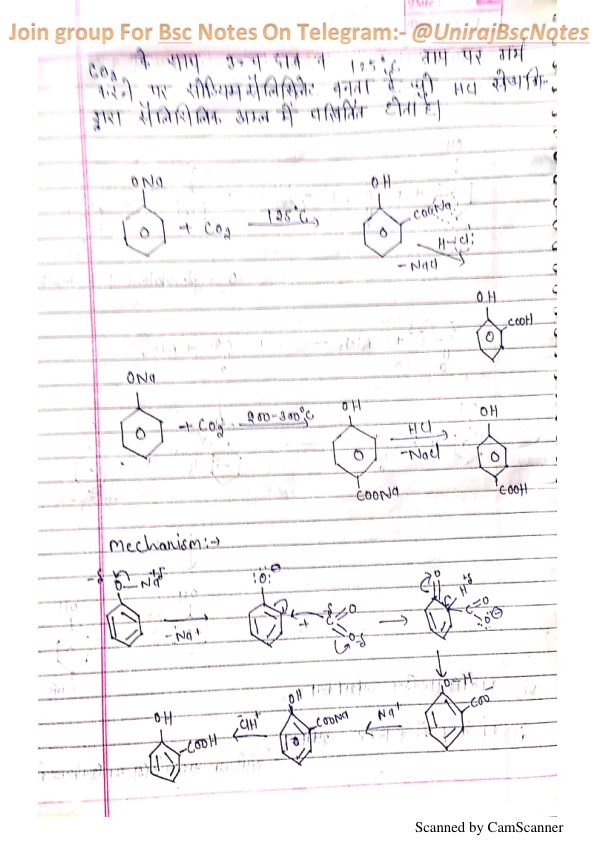 Join group For Bsc Notes On Telegram:- @UnirajBscNotes
CO₂ के साथ उच्च दाब व 125°C ताप पर गर्म
करने पर सोडियम सैलिसिलेट बनता है जो HCl
द्वारा सैलिसिलिक अम्ल में परिवर्तित होता है।
ONa
+ CO₂
125°C
OH
COONa
H-Cl
-NaCl
OH
COOH
ONa
+ CO₂
200-300°C
OH
COONa
HCl
-NaCl
OH
COOH
Mechanism:→
-δ O-Na +δ
-Na⁺
:O:⊖
+
C
O
O
δ
O
H
C
O
O⊖
O-H
COO⁻
Na⁺
OH
COONa
H⁺
OH
COOH
Scanned by CamScanner